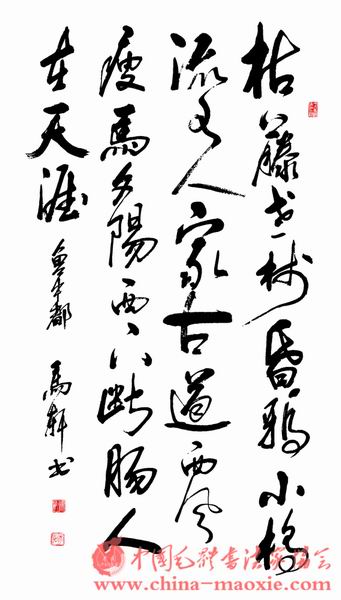 枯藤老樹昏鴉小橋
流水人家古道西風
瘦馬夕陽西下斷腸人
在天涯 魯中都 馬軒书
中国毛体书法家协会
www.china-maoxie.com